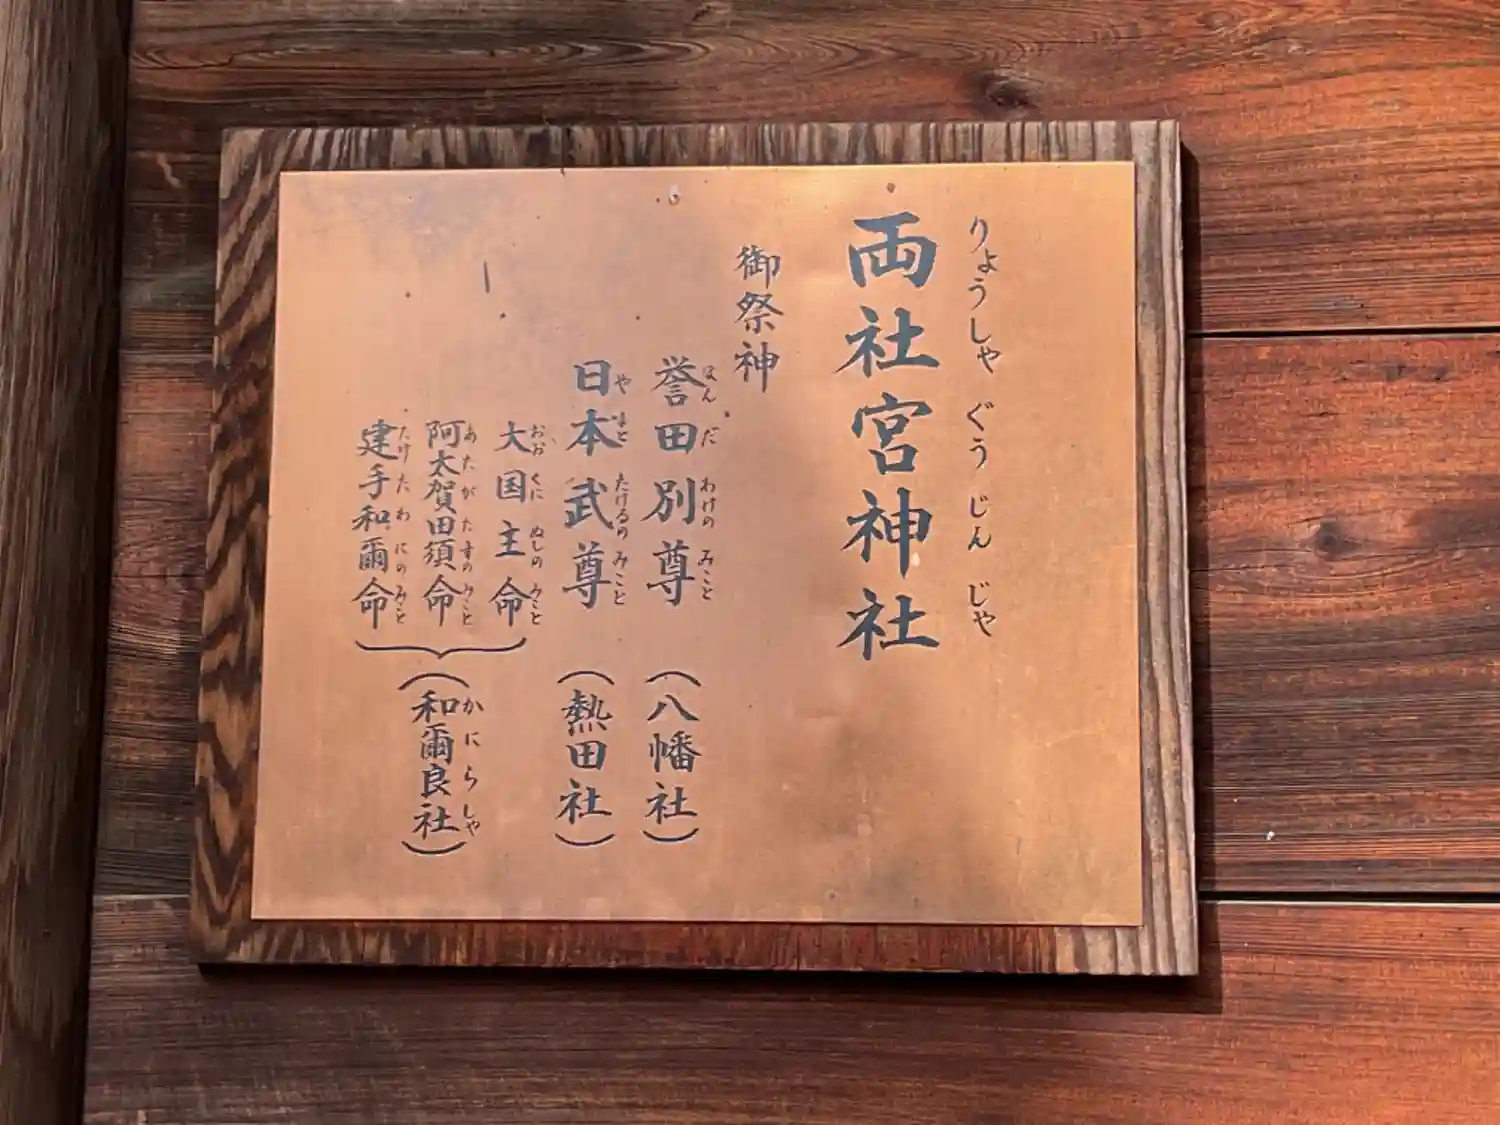 りょうしゃ ぐう じん じゃ
両社宮神社
御祭神
ほん だ わけの みこと
誉田別尊 (八幡社)
や まと たけるの みこと
日本武尊 (熱田社)
おお くに ぬしの みこと
大国主命
あ た が た す の みこと
阿太賀田須命
たけ た わ に の みこと
建手和爾命
か に ら しゃ
(和爾良社)